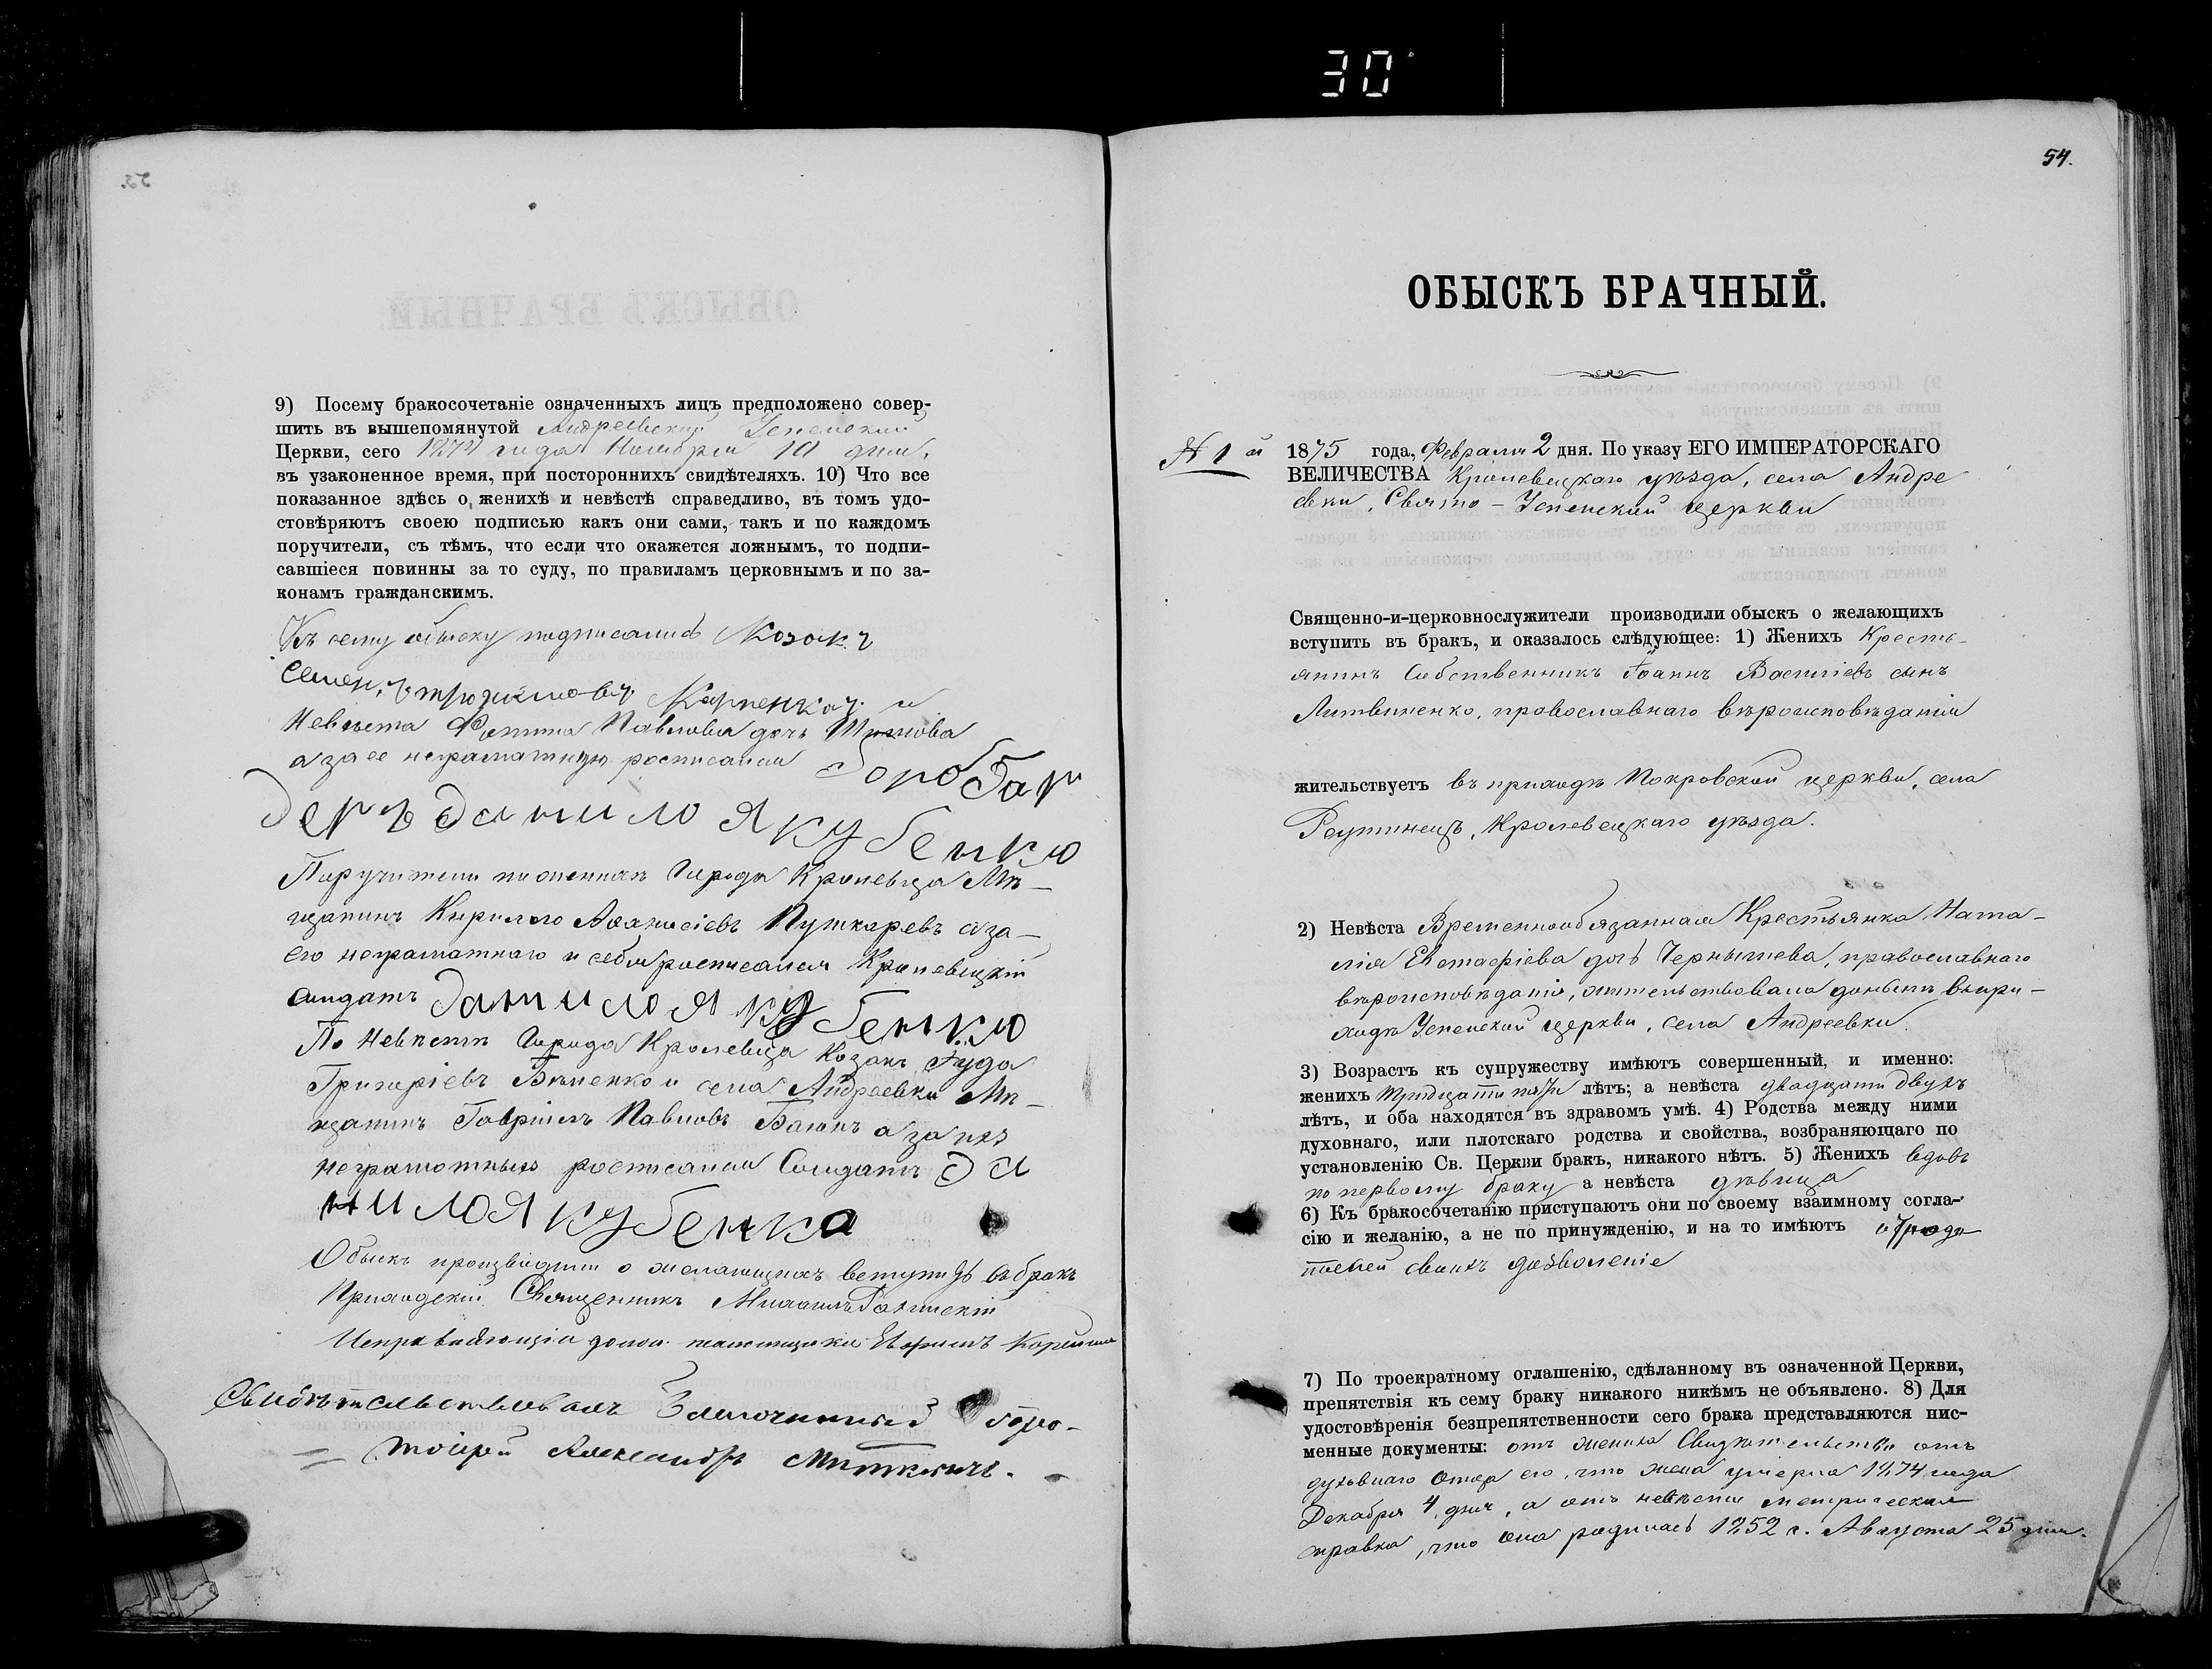 30
53.
9) Посему бракосочетаніе означенныхъ лицъ предположено совер-
шить въ вышепомянутой Андреевской Успенской
Церкви, сего 1874 года Ноября 10 дня,
въ узаконенное время, при постороннихъ свидѣтеляхъ. 10) Что все
показанное здѣсь о женихѣ и невѣстѣ справедливо, въ томъ удо-
стовѣряютъ своею подписью какъ они сами, такъ и по каждомъ
поручители, съ тѣмъ, что если что окажется ложнымъ, то подпи-
савшіеся повинны за то суду, по правиламъ церковнымъ и по за-
конамъ гражданскимъ.
Къ сему обыску подписались Козакъ
Семенъ Карпенко и
Невѣста Павлова дочь
а за ее неграматную росписался
Данило Якубенко
Поручители по женихѣ Города Кролевца Мѣ-
щанинъ Кирилло Аѳанасіевъ Пушкаревъ а за
его неграматнаго и себя росписался Кролевецкій
Солдатъ Данило Якубенко
По Невѣстѣ Города Кролевца Козакъ
Григоріевъ и села Андреевки Мѣ-
щанинъ Гавріилъ Павловъ а за нихъ
неграмотныхъ росписался Солдатъ Да
нило Якубенко
Обыскъ производили о желающихъ вступить въ бракъ
Приходскій Священникъ Михаилъ
Исправляющій долж. псаломщика
Свидѣтельствовалъ Благочинный Прото-
іерей Александръ
54.
ОБЫСКЪ БРАЧНЫЙ.
№ 1й 1875 года, Февраля 2 дня. По указу ЕГО ИМПЕРАТОРСКАГО
ВЕЛИЧЕСТВА Кролевецкаго уѣзда, села Андре
евки, Свято-Успенской церкви
Священно-и-церковнослужители производили обыскъ о желающихъ
вступить въ бракъ, и оказалось слѣдующее: 1) Женихъ Кресть-
янинъ Собственникъ Іоаннъ Василіевъ сынъ
Литвиненко, православнаго вѣроисповѣданія
жительствуетъ въ приходѣ Покровской церкви, села
Реутинецъ, Кролевецкаго уѣзда.
2) Невѣста Временнообязанная Крестьянка Ната-
лія Евстафіева дочь Чернышева, православнаго
вѣроисповѣданія, жительствовала донынѣ въ при-
ходѣ Успенской церкви, села Андреевки.
3) Возрастъ къ супружеству имѣютъ совершенный, и именно:
женихъ тридцати пяти лѣтъ; а невѣста двадцати двухъ
лѣтъ, и оба находятся въ здравомъ умѣ. 4) Родства между ними
духовнаго, или плотскаго родства и свойства, возбраняющаго по
установленію Св. Церкви бракъ, никакого нѣтъ. 5) Женихъ вдовъ
по первому браку а невѣста дѣвица
6) Къ бракосочетанію приступаютъ они по своему взаимному согла-
сію и желанію, а не по принужденію, и на то имѣютъ отъ роди
телей своихъ дозволеніе
7) По троекратному оглашенію, сдѣланному въ означенной Церкви,
препятствія къ сему браку никакого никѣмъ не объявлено. 8) Для
удостовѣренія безпрепятственности сего брака представляются пис-
менные документы: отъ жениха Свидѣтельство отъ
духовнаго Отца его, что жена умерла 1874 года
Декабря 4 дня, а отъ невѣсты метрическая
справка, что она родилась 1852 г. Августа 25 дня.